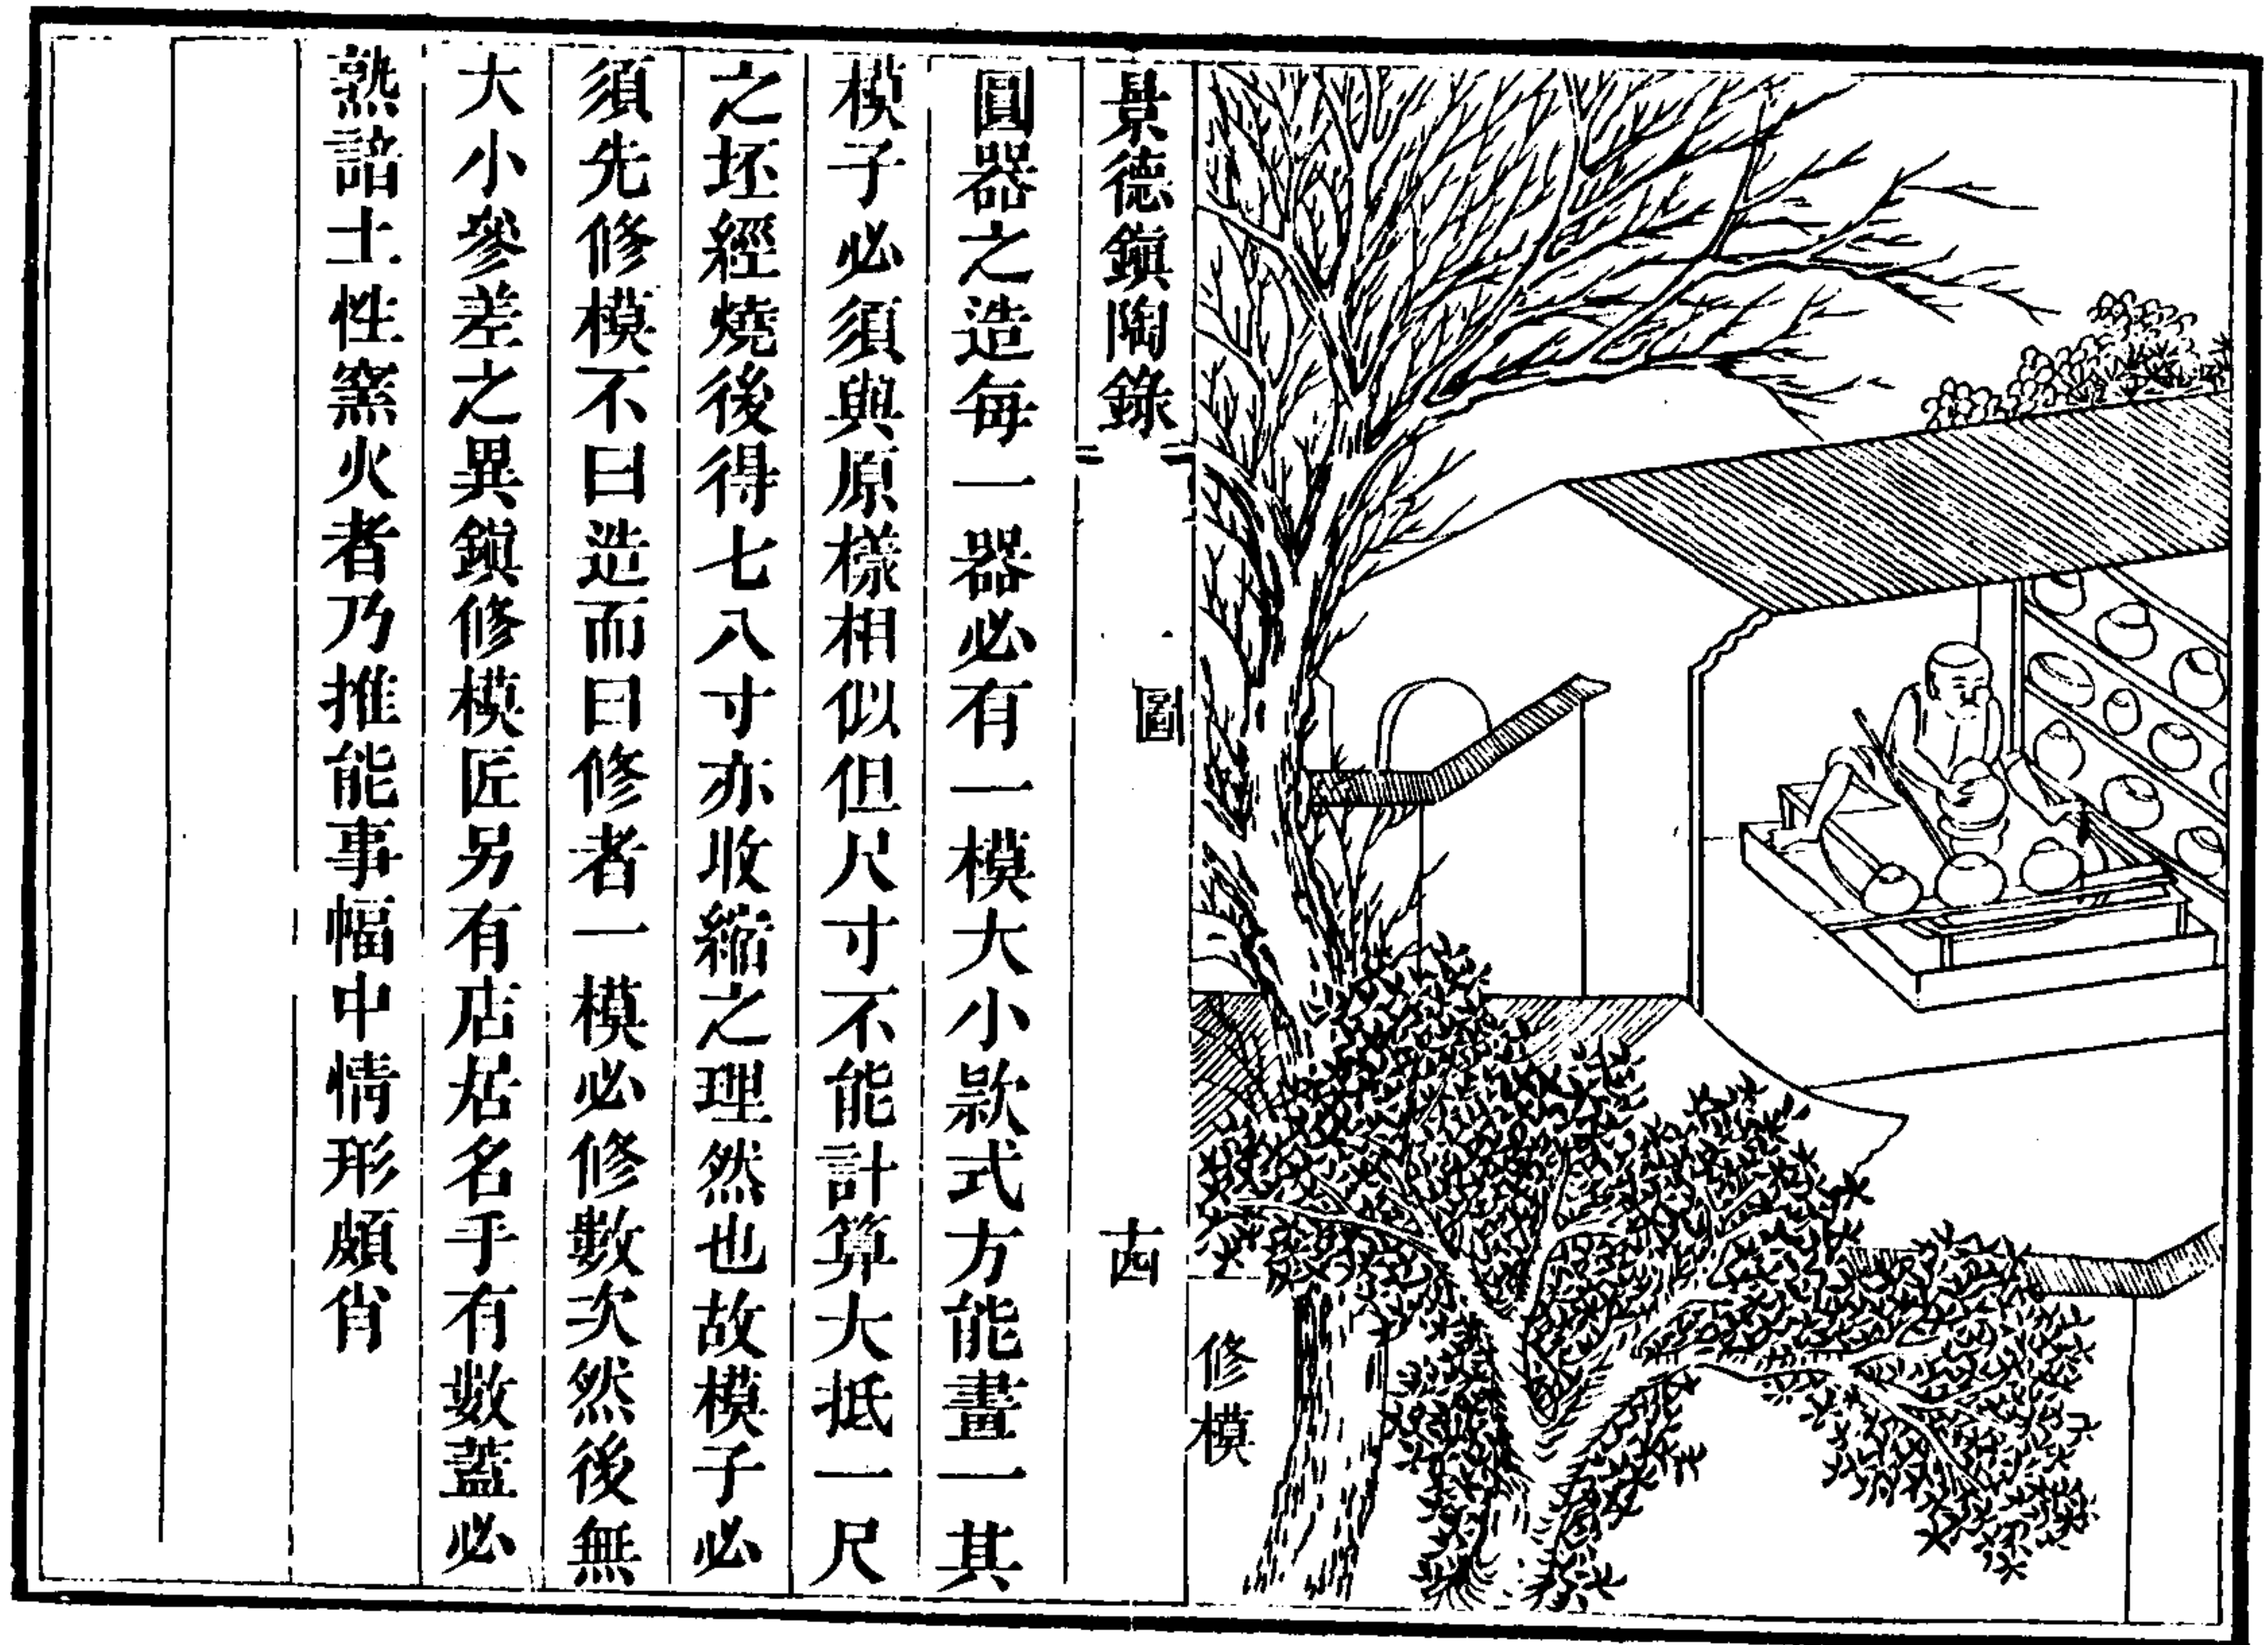 修模
景德鎮陶錄
圖
圓器之造每一器必有一模大小款式方能畫一其
模子必須與原樣相似但尺寸不能計算大抵一尺
之坯經燒後得七八寸亦收縮之理然也故模子必
須先修模不曰造而曰修者一模必修數次然後無
大小參差之異鎮修模匠另有店居名手有數蓋必
熟諳土性窯火者乃推能事幅中情形頗肖